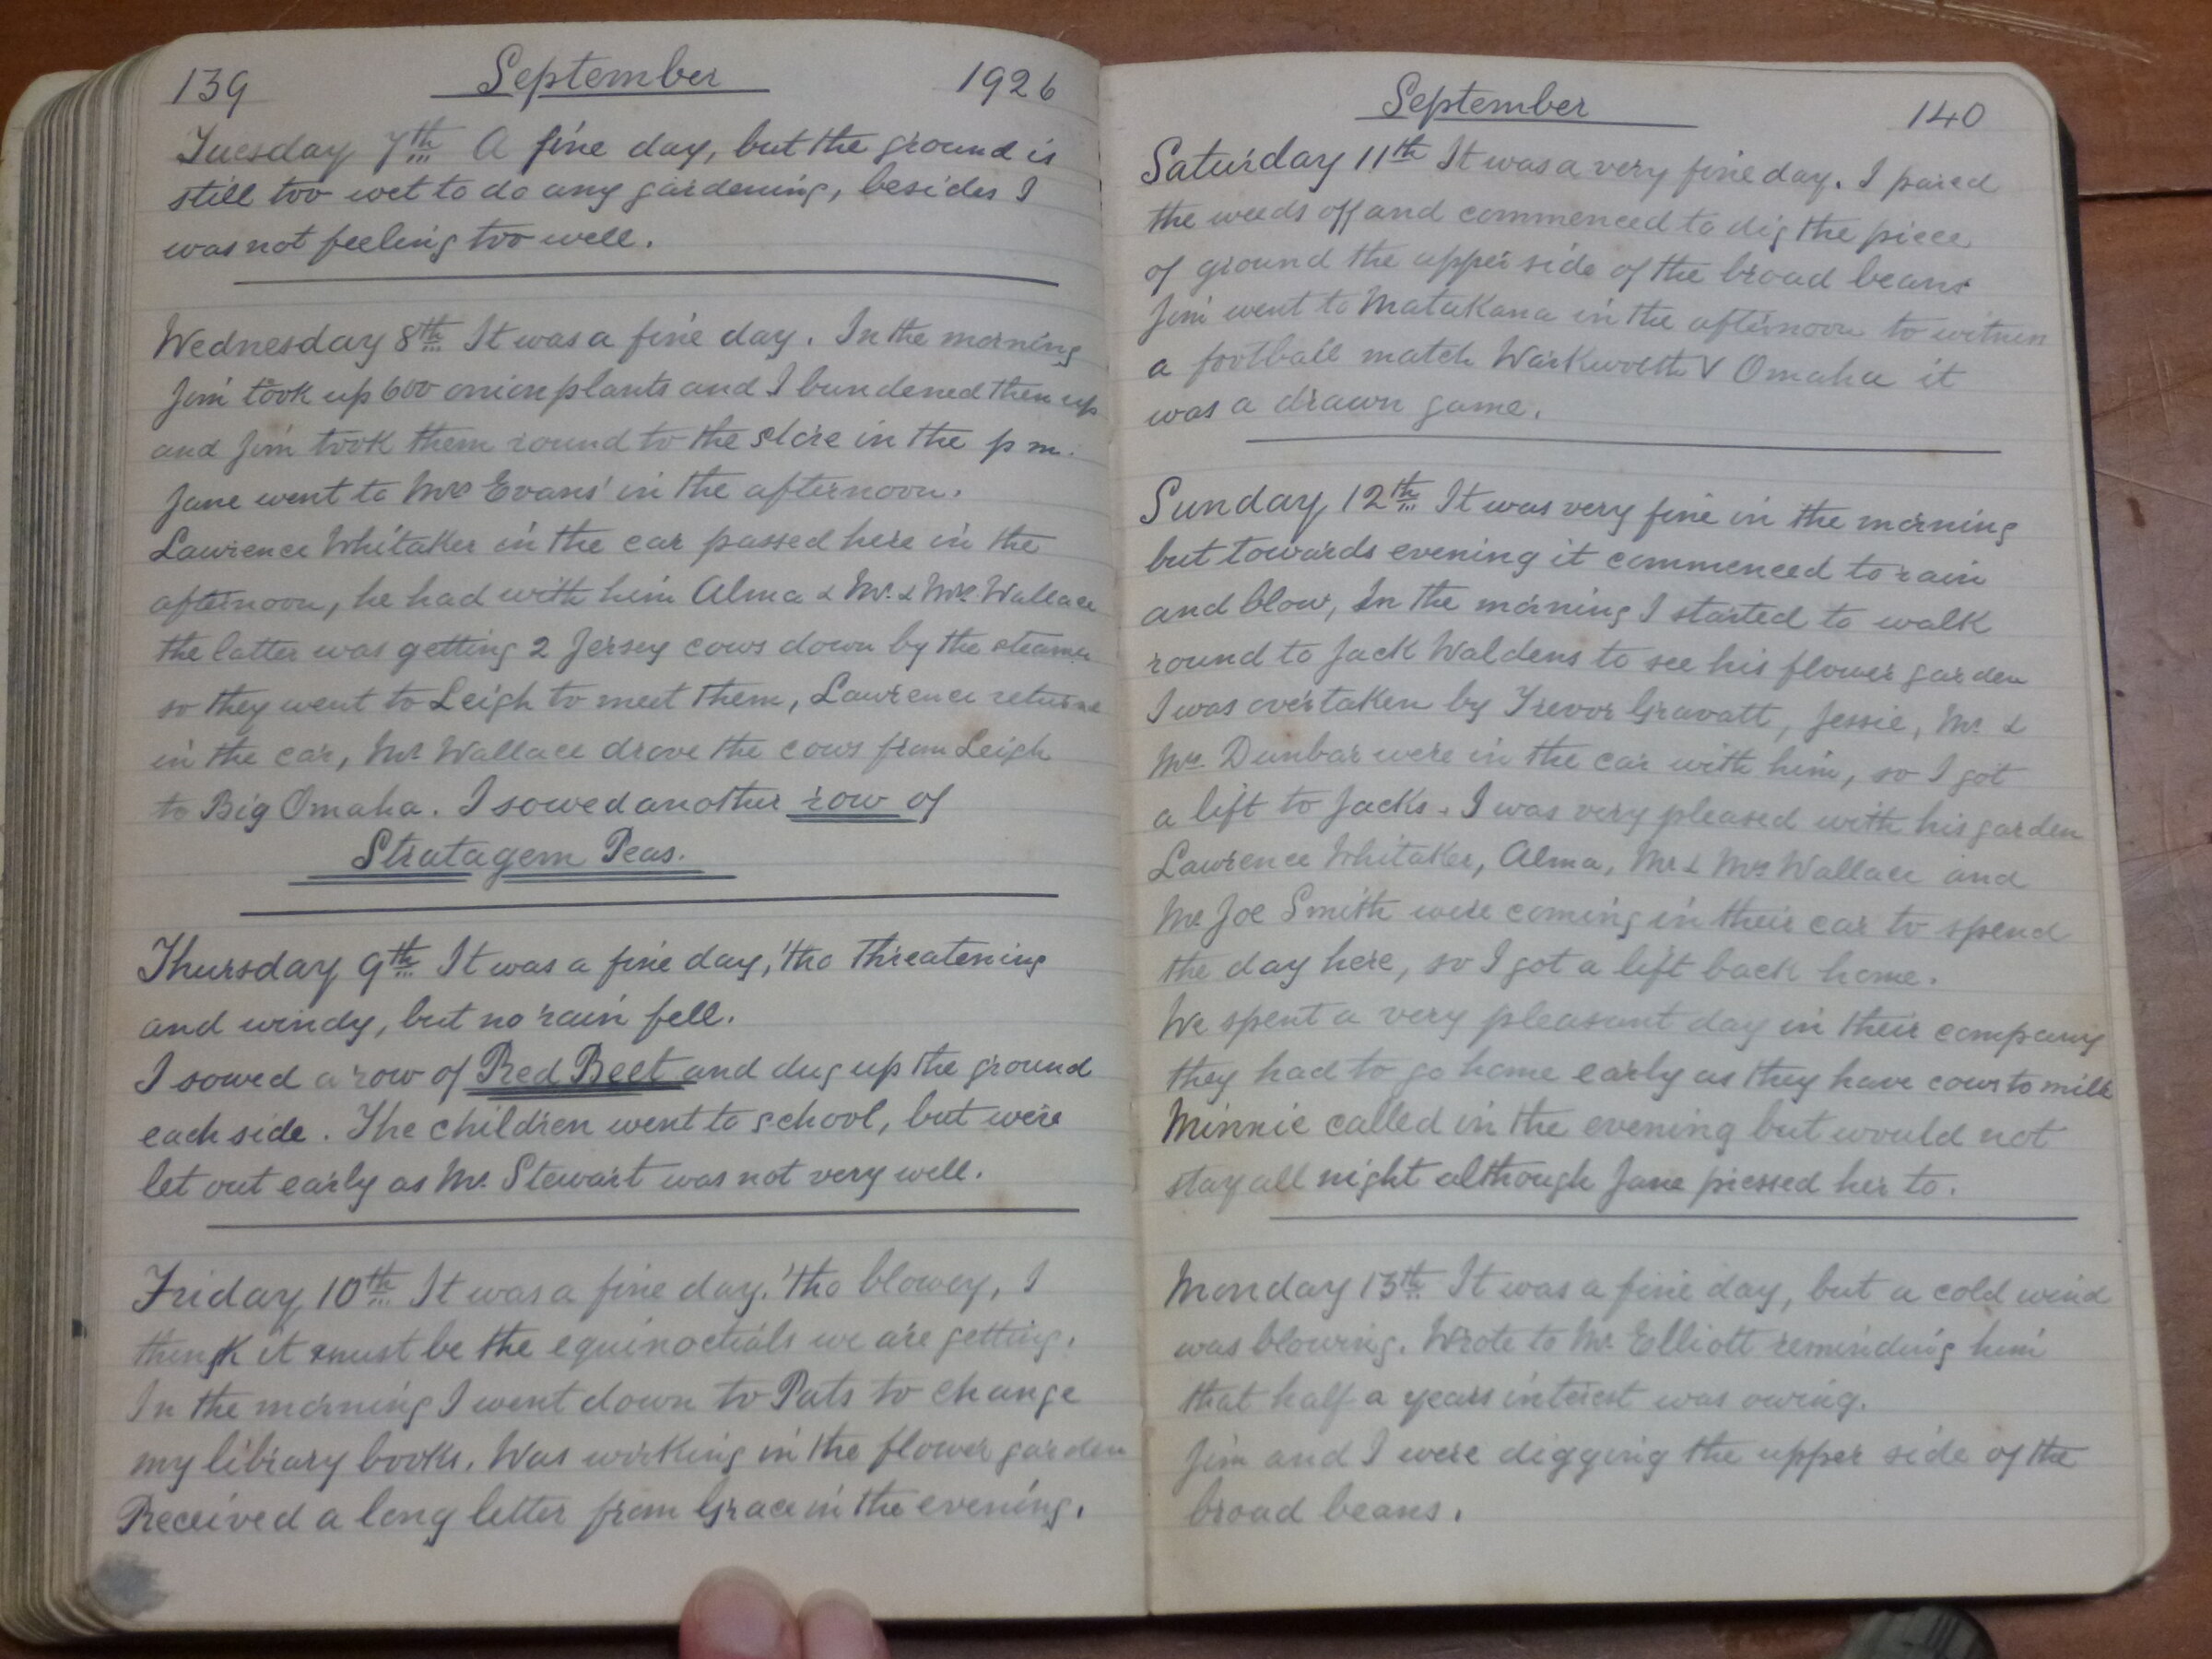 139 September 1926
Tuesday 7th A fine day, but the ground is
still too wet to do any gardening, besides I
was not feeling too well.
Wednesday 8th It was a fine day. In the morning
Jim took up 600 onion plants and I bundened them up
and Jim took them round to the store in the p m.
Jane went to Mrs Evans' in the afternoon.
Lawrence Whitaker in the car passed here in the
afternoon, he had with him Alma & Mr. & Mrs. Wallace
the latter was getting 2 Jersey cows down by the steamer
so they went to Leigh to meet them, Lawrence returne
in the car, Mr Wallace drove the cows from Leigh
to Big Omaha. I sowed another row of
Stratagem Peas.
Thursday 9th It was a fine day, 'tho threatening
and windy, but no rain fell.
I sowed a row of Red Beet and dug up the ground
each side. The children went to school, but were
let out early as Mr. Stewart was not very well.
Friday 10th It was a fine day. 'tho blowey, I
think it must be the equinoctials we are getting.
In the morning I went down to Pats to change
my library books. Was working in the flower garden
Received a long letter from Grace in the evening.
September 140
Saturday 11th It was a very fine day. I pared
the weeds off and commenced to dig the piece
of ground the upper side of the broad beans
Jim went to Matakana in the afternoon to witness
a football match Warkworth V Omaha it
was a drawn game.
Sunday 12th It was very fine in the morning
but towards evening it commenced to rain
and blow, In the morning I started to walk
round to Jack Waldens to see his flower garden
I was overtaken by Trevor Gravatt, Jessie, Mr. &
Mrs. Dunbar were in the car with him, so I got
a lift to Jacks. I was very pleased with his garden
Lawrence Whitaker, Alma, Mr & Mrs Wallace and
Mr Joe Smith were coming in their car to spend
the day here, so I got a lift back home.
We spent a very pleasant day in their company
they had to go home early as they have cows to milk
Minnie called in the evening but would not
stay all night although Jane pressed her to.
Monday 13th It was a fine day, but a cold wind
was blowing. Wrote to Mr Elliott reminding him
that half a years interest was owing.
Jim and I were digging the upper side of the
broad beans.